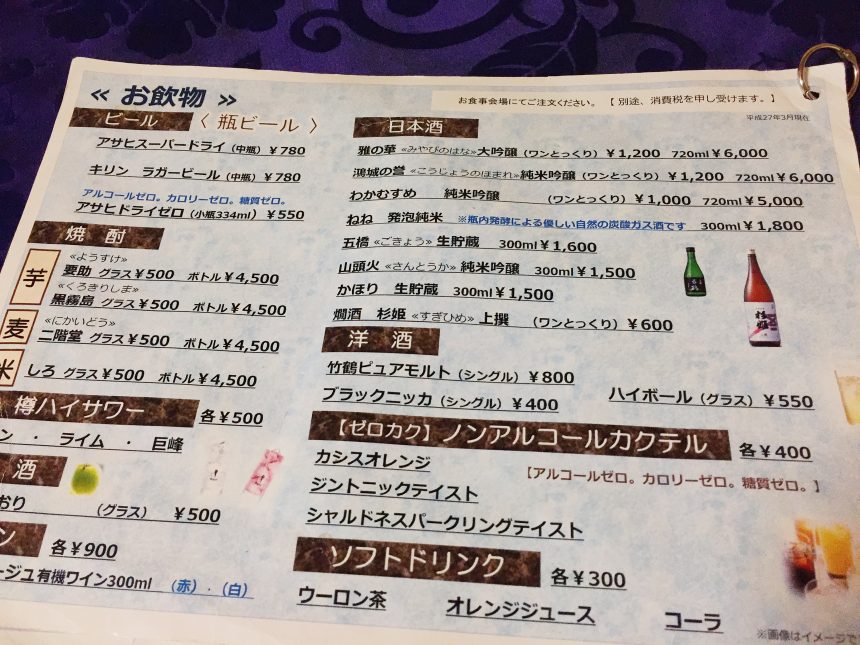 ≪ お飲物 ≫
お食事会場にてご注文ください。【 別途、消費税を申し受けます。】
平成27年3月現在
ビール 〈 瓶ビール 〉
アサヒスーパードライ（中瓶）￥780
キリン ラガービール（中瓶）￥780
アルコールゼロ。カロリーゼロ。糖質ゼロ。
アサヒドライゼロ（小瓶334ml）￥550
焼 酎
芋
≪ようすけ≫
要助 グラス￥500 ボトル￥4,500
≪くろきりしま≫
黒霧島 グラス￥500 ボトル￥4,500
麦
≪にかいどう≫
二階堂 グラス￥500 ボトル￥4,500
米
しろ グラス￥500 ボトル￥4,500
樽ハイサワー 各￥500
ン ・ ライム ・ 巨峰
酒
おり （グラス） ￥500
ン 各￥900
ージュ有機ワイン300ml （赤）.（白）
日本酒
雅の華 ≪みやびのはな≫大吟醸（ワンとっくり）￥1,200 720ml￥6,000
鴻城の誉 ≪こうじょうのほまれ≫純米吟醸（ワンとっくり）￥1,200 720ml￥6,000
わかむすめ 純米吟醸 （ワンとっくり）￥1,000 720ml￥5,000
ねね 発泡純米 ※瓶内発酵による優しい自然の炭酸ガス酒です 300ml￥1,800
五橋 ≪ごきょう≫ 生貯蔵 300ml￥1,600
山頭火 ≪さんとうか≫ 純米吟醸 300ml￥1,500
かほり 生貯蔵 300ml￥1,500
燗酒 杉姫 ≪すぎひめ≫ 上撰 （ワンとっくり）￥600
杉姫
洋 酒
竹鶴ピュアモルト（シングル）￥800
ブラックニッカ（シングル）￥400 ハイボール（グラス）￥550
【ゼロカク】ノンアルコールカクテル 各￥400
カシスオレンジ 【アルコールゼロ。カロリーゼロ。糖質ゼロ。】
ジントニックテイスト
シャルドネスパークリングテイスト
ソフトドリンク 各￥300
ウーロン茶 オレンジジュース コーラ
※画像はイメージで